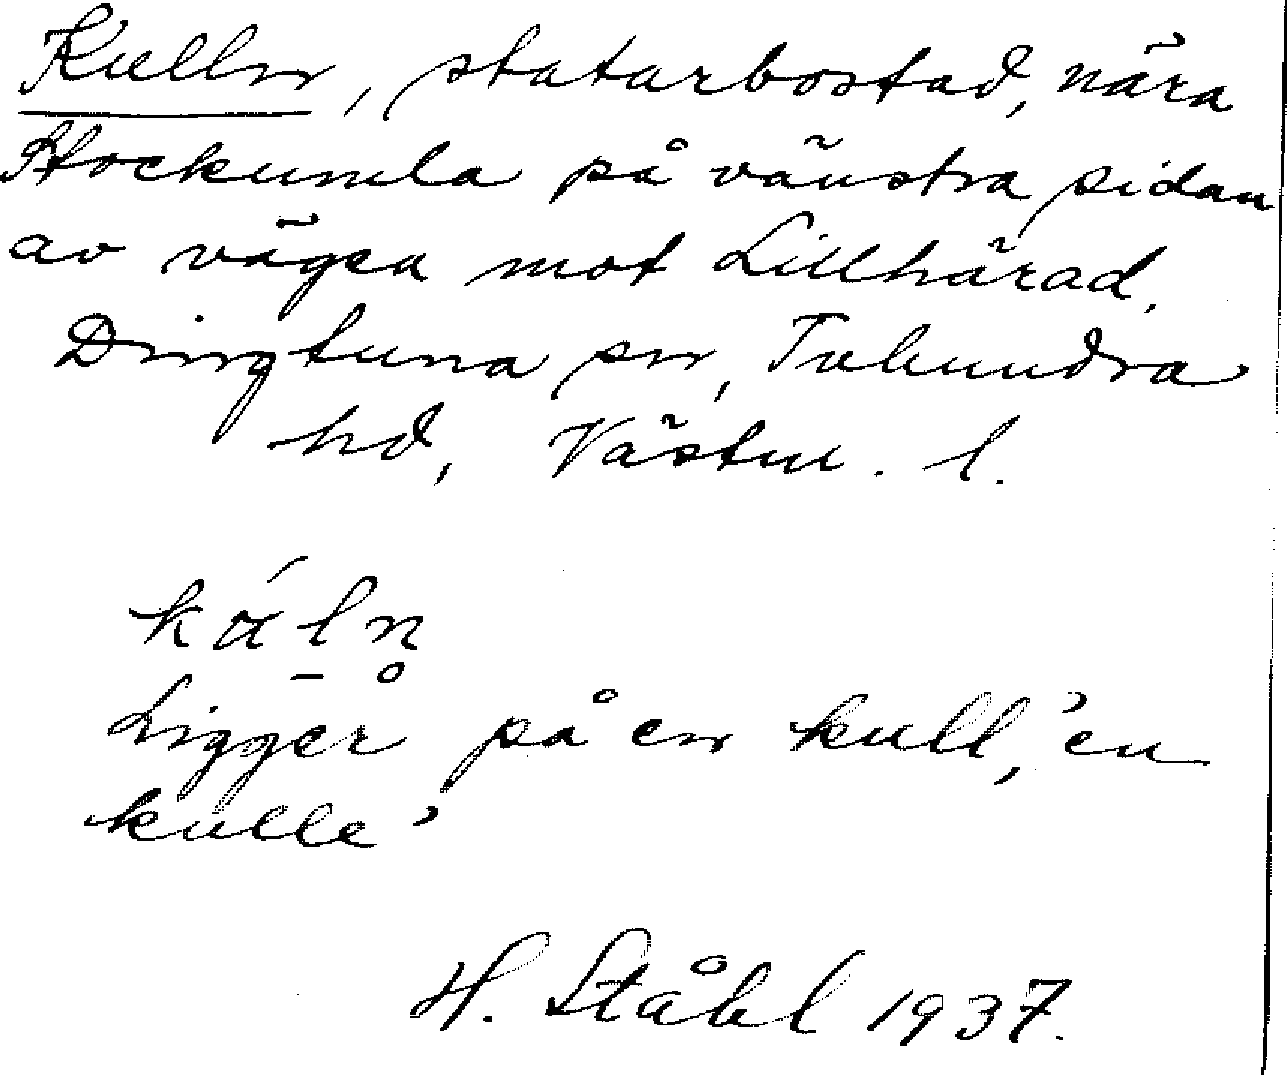 Kullen, statarbostad, nära
Stockumla på vänstra sidan
av vägen mot Lillhärad,
Dingtuna sn, Tuhundra
hd, Västm. l.
Ligger på en kull, 'en
kulle'
H. Ståhl 1937.